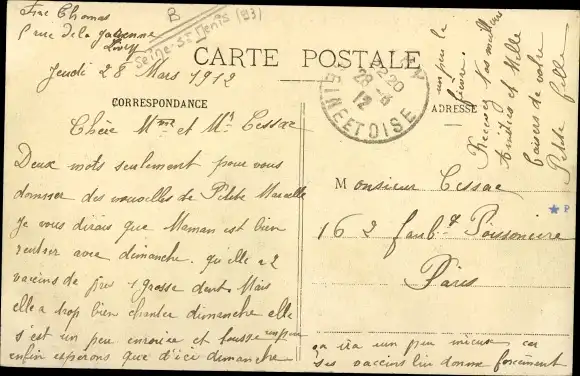 Frac Thomas
rue de la garenne
Livry
B
Seine-St Denis (93)
CARTE POSTALE
Jeudi 28 Mars 1912
CORRESPONDANCE
ADRESSE
28 -3
12
SEINE ET OISE
Chère Mme et Mr Cessac
Deux mots seulement pour vous
donner des nouvelles de Petite Marcelle
Je vous dirais que Maman est bien
rentrer avec dimanche. qu'elle a 2
vaccins de pris 1 grosse dent. Mais
elle a trop bien chanter dimanche elle
s'est un peu enrouée et tousse
enfin espérons que d'ici dimanche
ça ira un peu mieux car
ses vaccins lui donne forcément
un peu la
fièvre.
Recevez les meilleurs
Amitiés et Mille
baisers de votre
Petite fille
Monsieur Cessac
162 faubg Poissonière
Paris
P